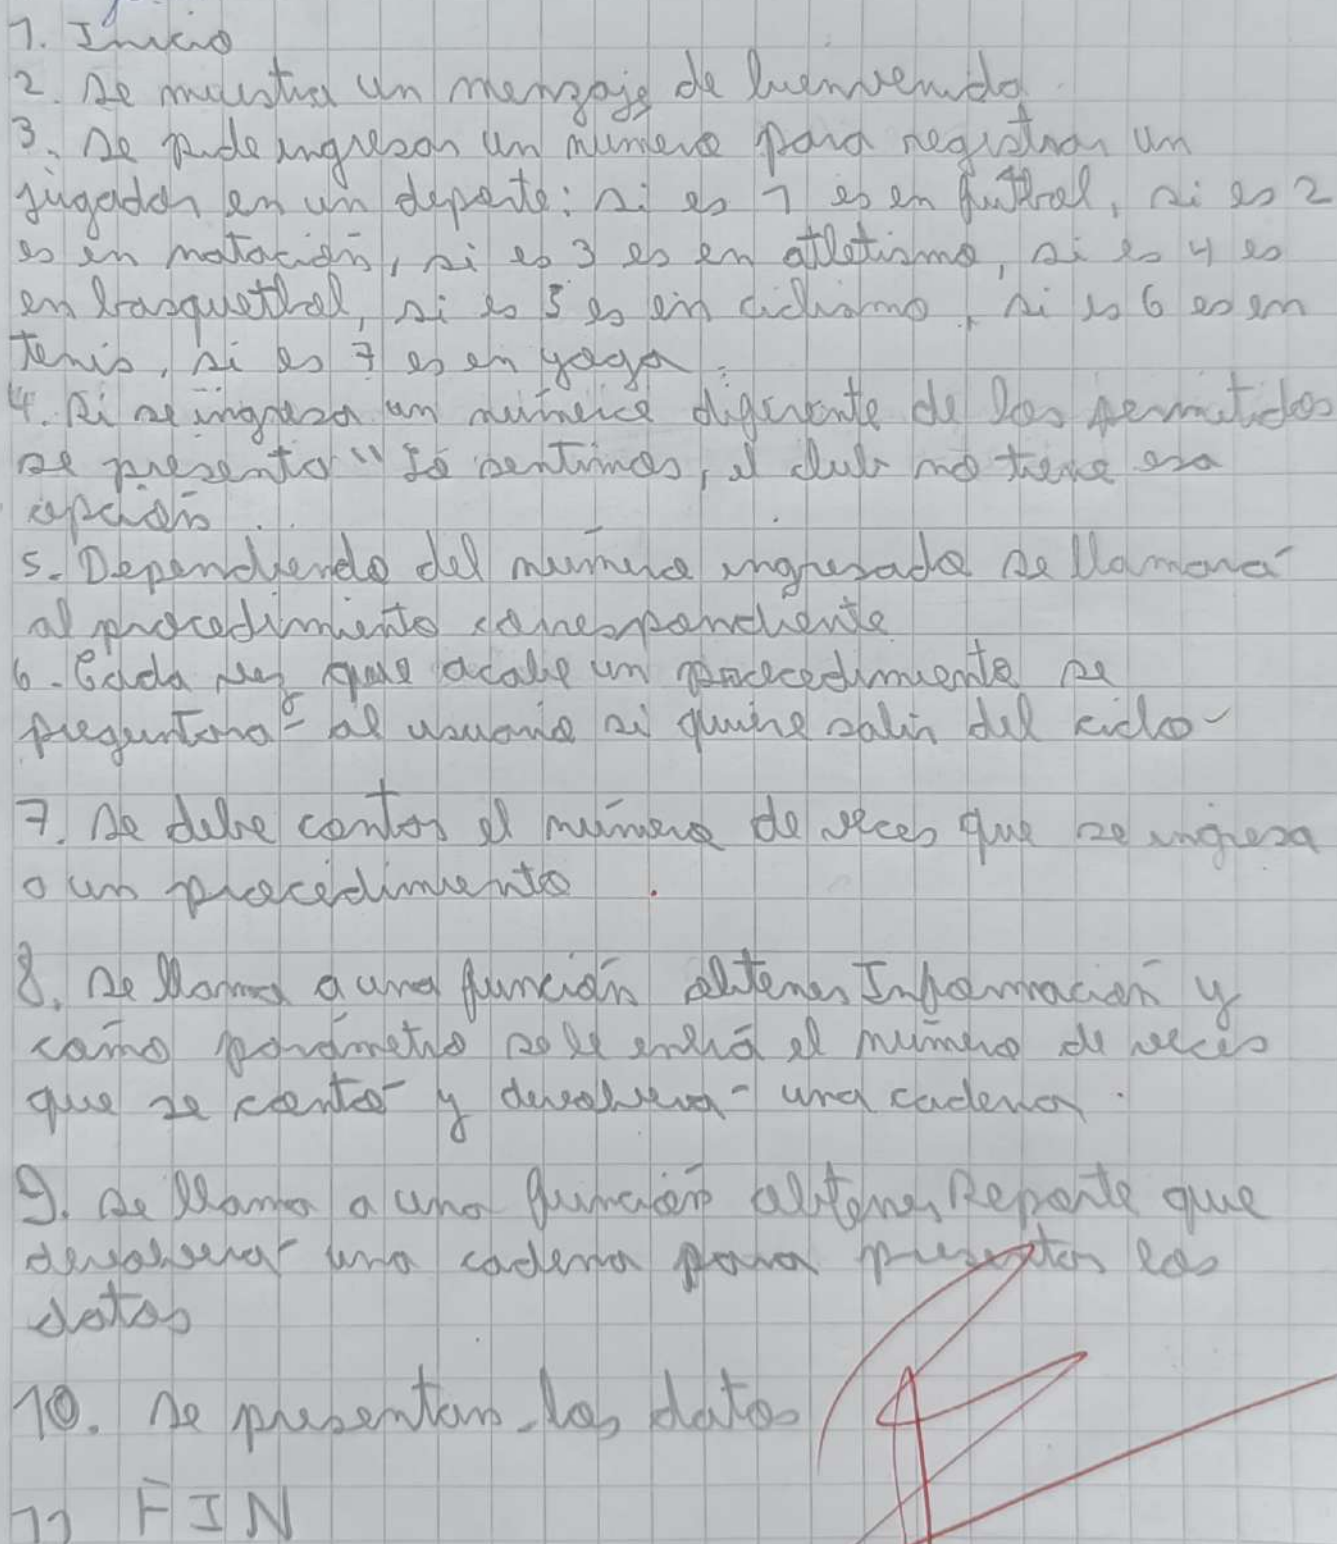 1. Inicio
2. Se muestra un menzaje de bienvenida.
3. Se pide ingresar un número para registrar un
jugador en un deporte: si es 1 es en futbol, si es 2
es en natación, si es 3 es en atletismo, si es 4 es
en basquetbol, si es 5 es en ciclismo, si es 6 es en
tenis, si es 7 es en yoga.
4. Si se ingresa un número diferente de los permitidos
se presenta "Lo sentimos, el club no tiene esa
opción
5. Dependiendo del número ingresado se llamará
al procedimiento correspondiente
6. Cada vez que acabe un procedimiento se
preguntará al usuario si quiere salir del ciclo
7. Se debe contar el número de veces que se ingresa
a un procedimiento
8. Se llama a una función obtener Información y
como parámetro se le envía el número de veces
que se contó y devolverá una cadena.
9. Se llama a una función obtener Reporte que
devolverá una cadena para presentar los
datos
10. Se presentan los datos
11 FIN